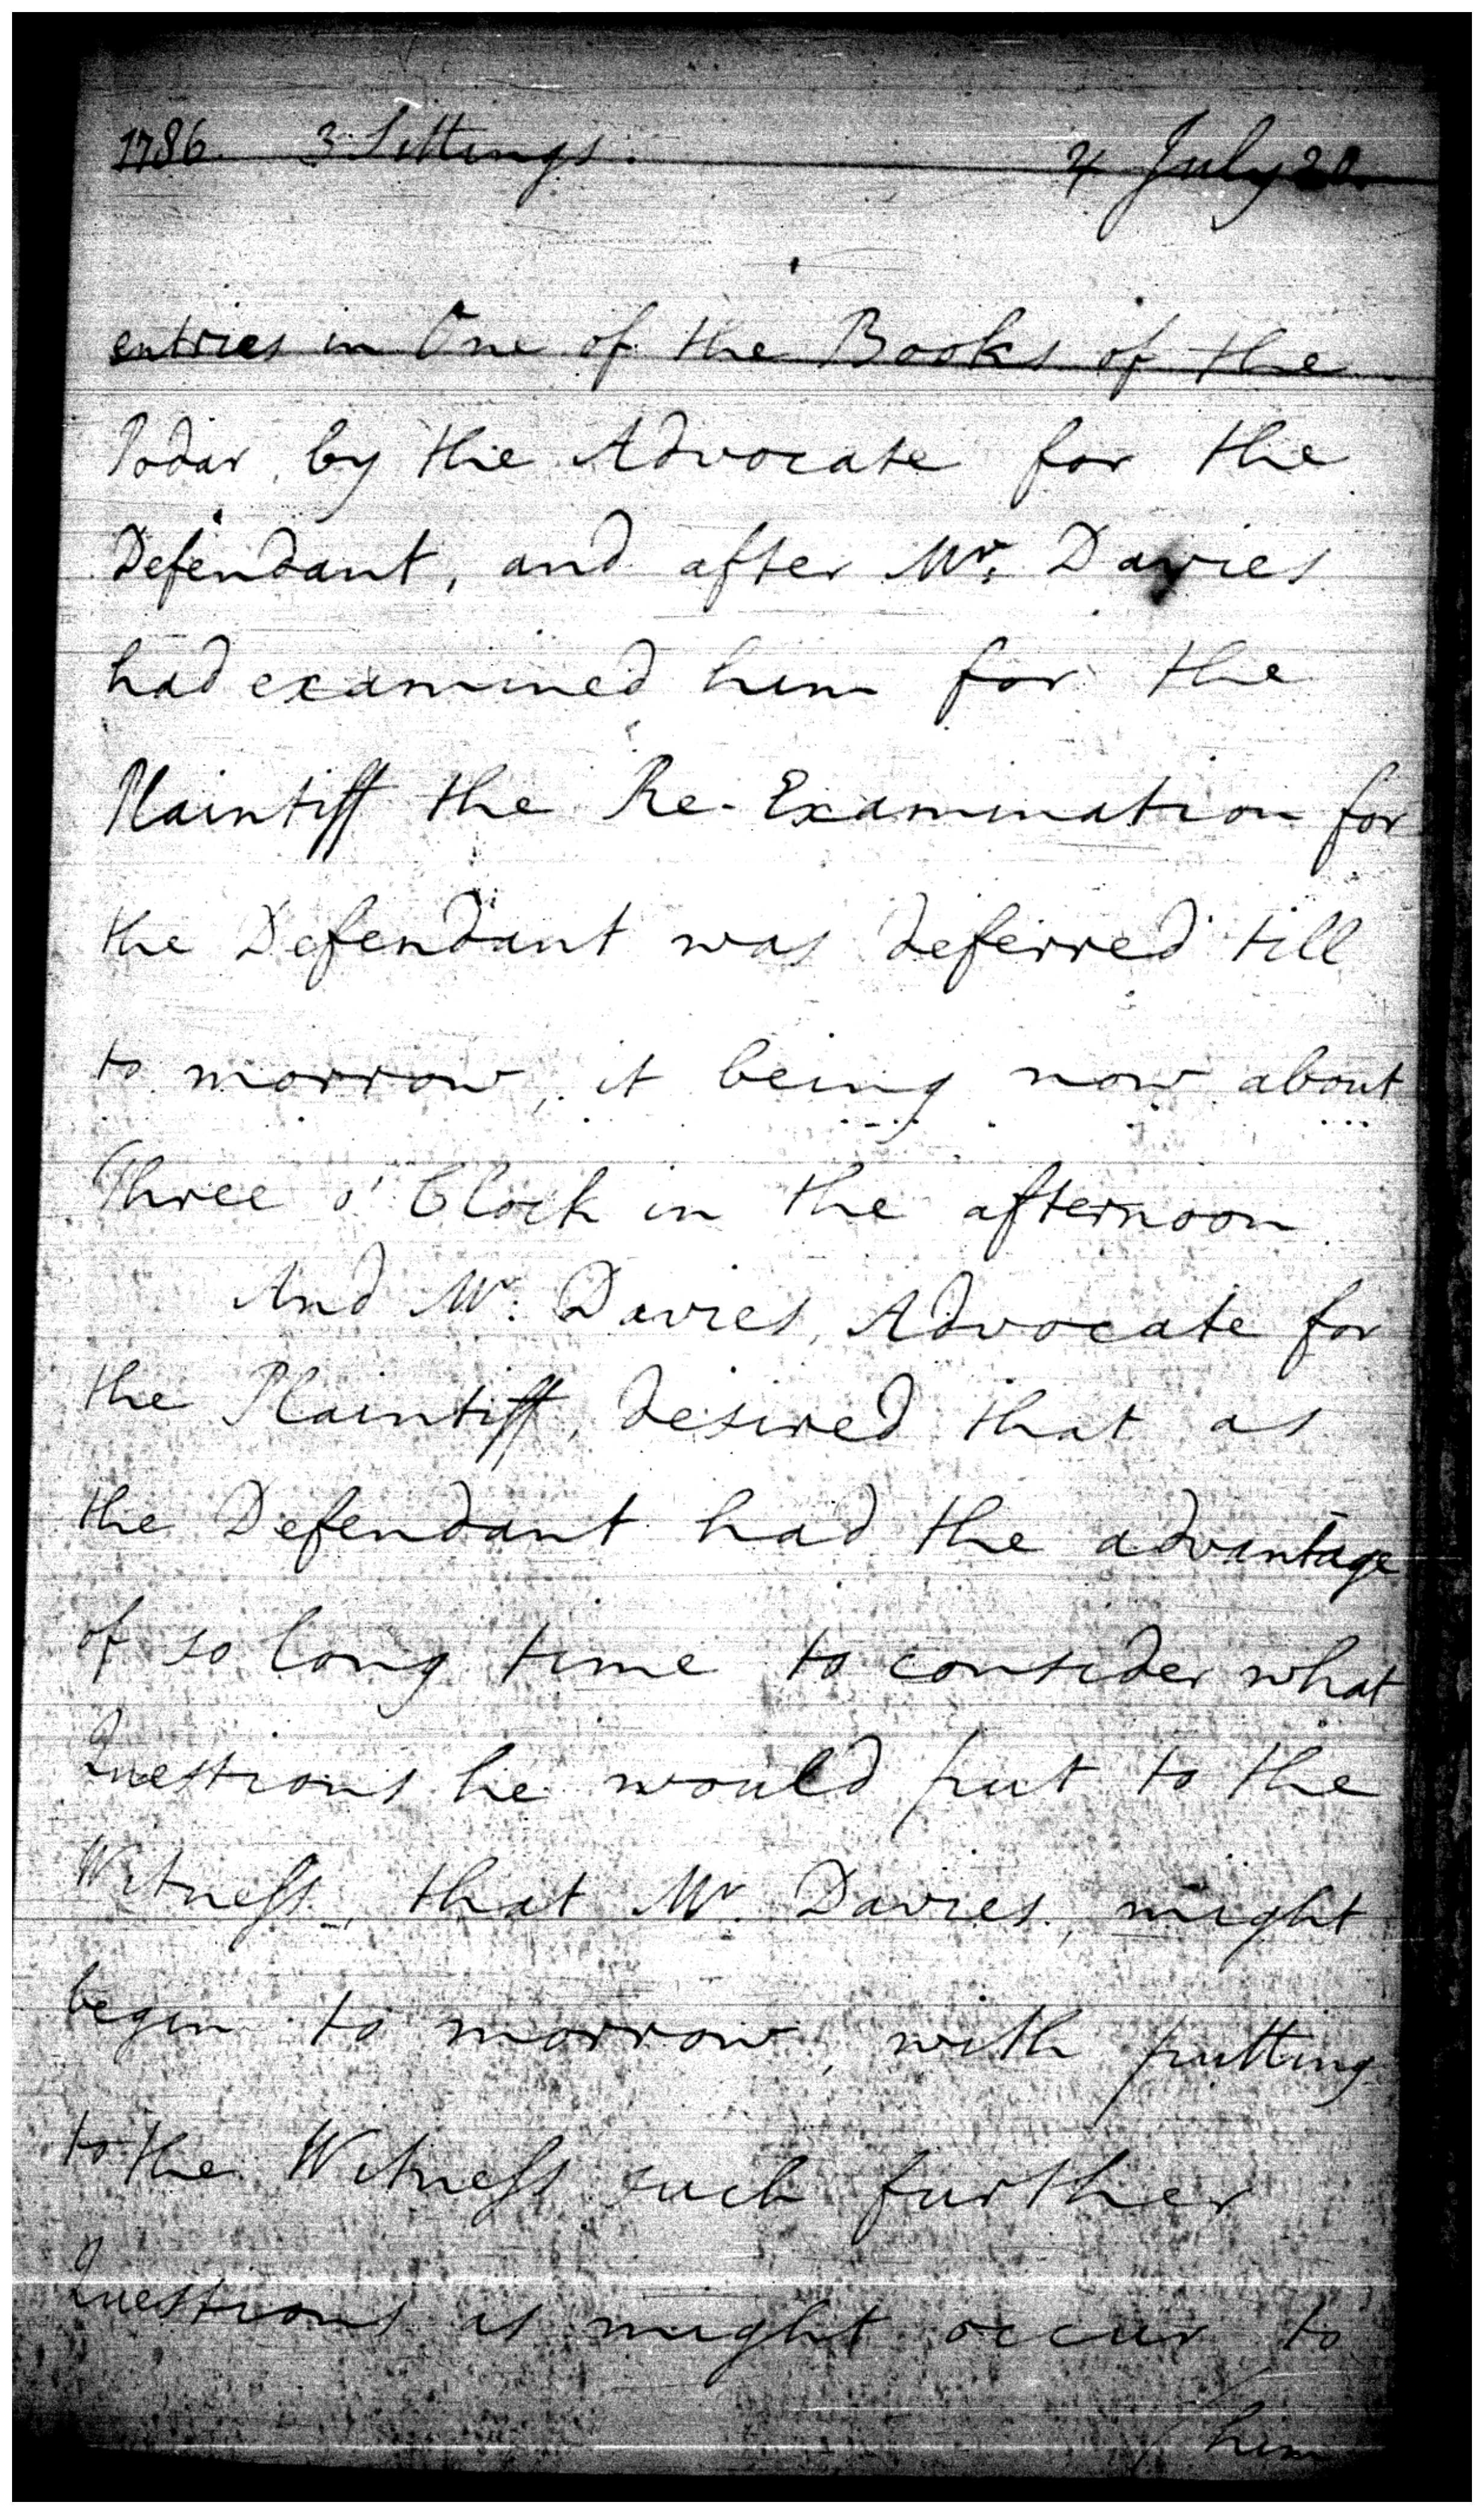 1786. 3 Sittings. 4 July 20
entries in One of the Books of the
Podar, by the Advocate for the
Defendant, and after Mr. Davies
had examined him for the
Plaintiff the Re-Examination for
the Defendant was deferred till
to morrow, it being now about
Three o' Clock in the afternoon.
And Mr. Davies, Advocate for
the Plaintiff, desired that as
the Defendant had the advantage
of so long time to consider what
Questions he would put to the
Witness, that Mr. Davies, might
begin to morrow, with putting
to the Witness such further
Questions as might occur to
him